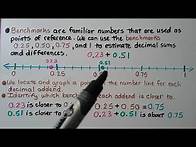 Benchmarks are familiar numbers that are used as
points of reference. We can use the benchmarks
0.25, 0.50, 0.75, and 1 to estimate decimal sums
and differences. 0.23 + 0.51
0.23 0.51
0 0.25 0.5 0.75 1
We locate and graph a point on the number line for each
decimal addend.
Identify which benchmark each addend is closer to.
0.23 is closer to 0.25
0.51 is closer to 0.5